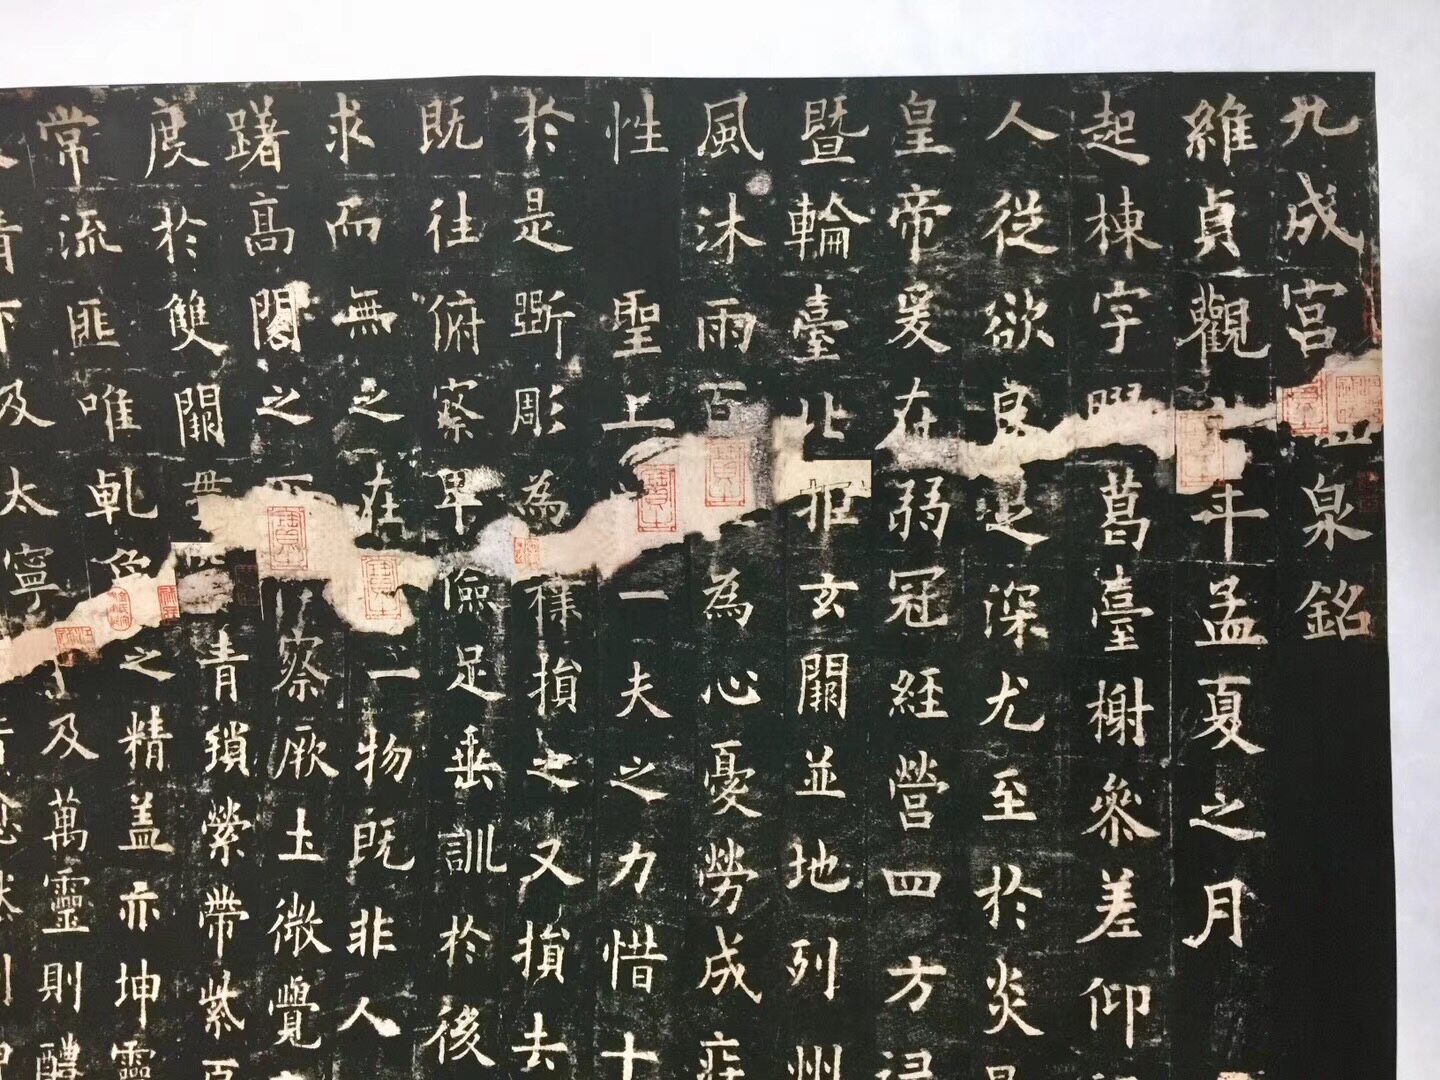 九成宮泉銘
維貞觀年孟夏之月
起棟宇葛臺榭參差仰
人從欲良足深尤至於炎
皇帝爰在弱冠經營四方
暨輪臺北拒玄闕並地列州
風沐雨百為心憂勞成疾
性 聖上一夫之力惜十
於是斲彫為樸損之又損去
既往俯察卑儉足垂訓於後
求而無之在一物既非人
躇高閣之察厥土微覺
度於雙闕青瑣縈帶紫
常流匪唯乾象之精蓋亦坤靈
清下及太寧及萬靈則醴